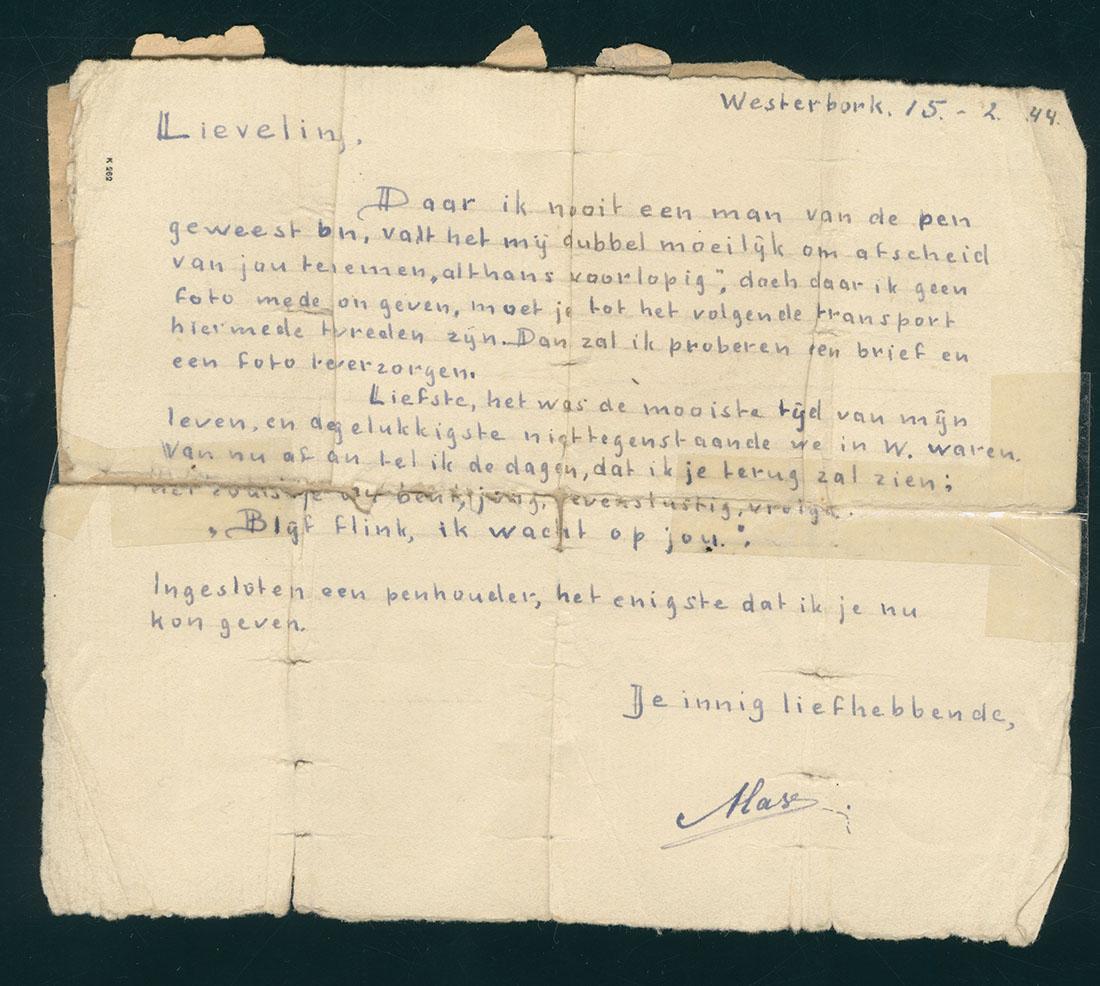 Westerbork. 15. - 2. 44.
Lieveling,
K 262
Daar ik nooit een man van de pen
geweest bn, valt het mij dubbel moeilijk om afscheid
van jou te nemen, „althans voorlopig”, doch daar ik geen
foto mede kon geven, moet je tot het volgende transport
hiermede tvreden zijn. Dan zal ik proberen een brief en
een foto te verzorgen.
Liefste, het was de mooiste tijd van mijn
leven, en de gelukkigste niettegenstaande we in W. waren.
Van nu af an tel ik de dagen, dat ik je terug zal zien;
net zoals je nu bent, jong, levenslustig, vrolijk.
„Blijf flink, ik wacht op jou.”
Ingesloten een penhouder, het enigste dat ik je nu
kon geven.
Je innig liefhebbende,
Max